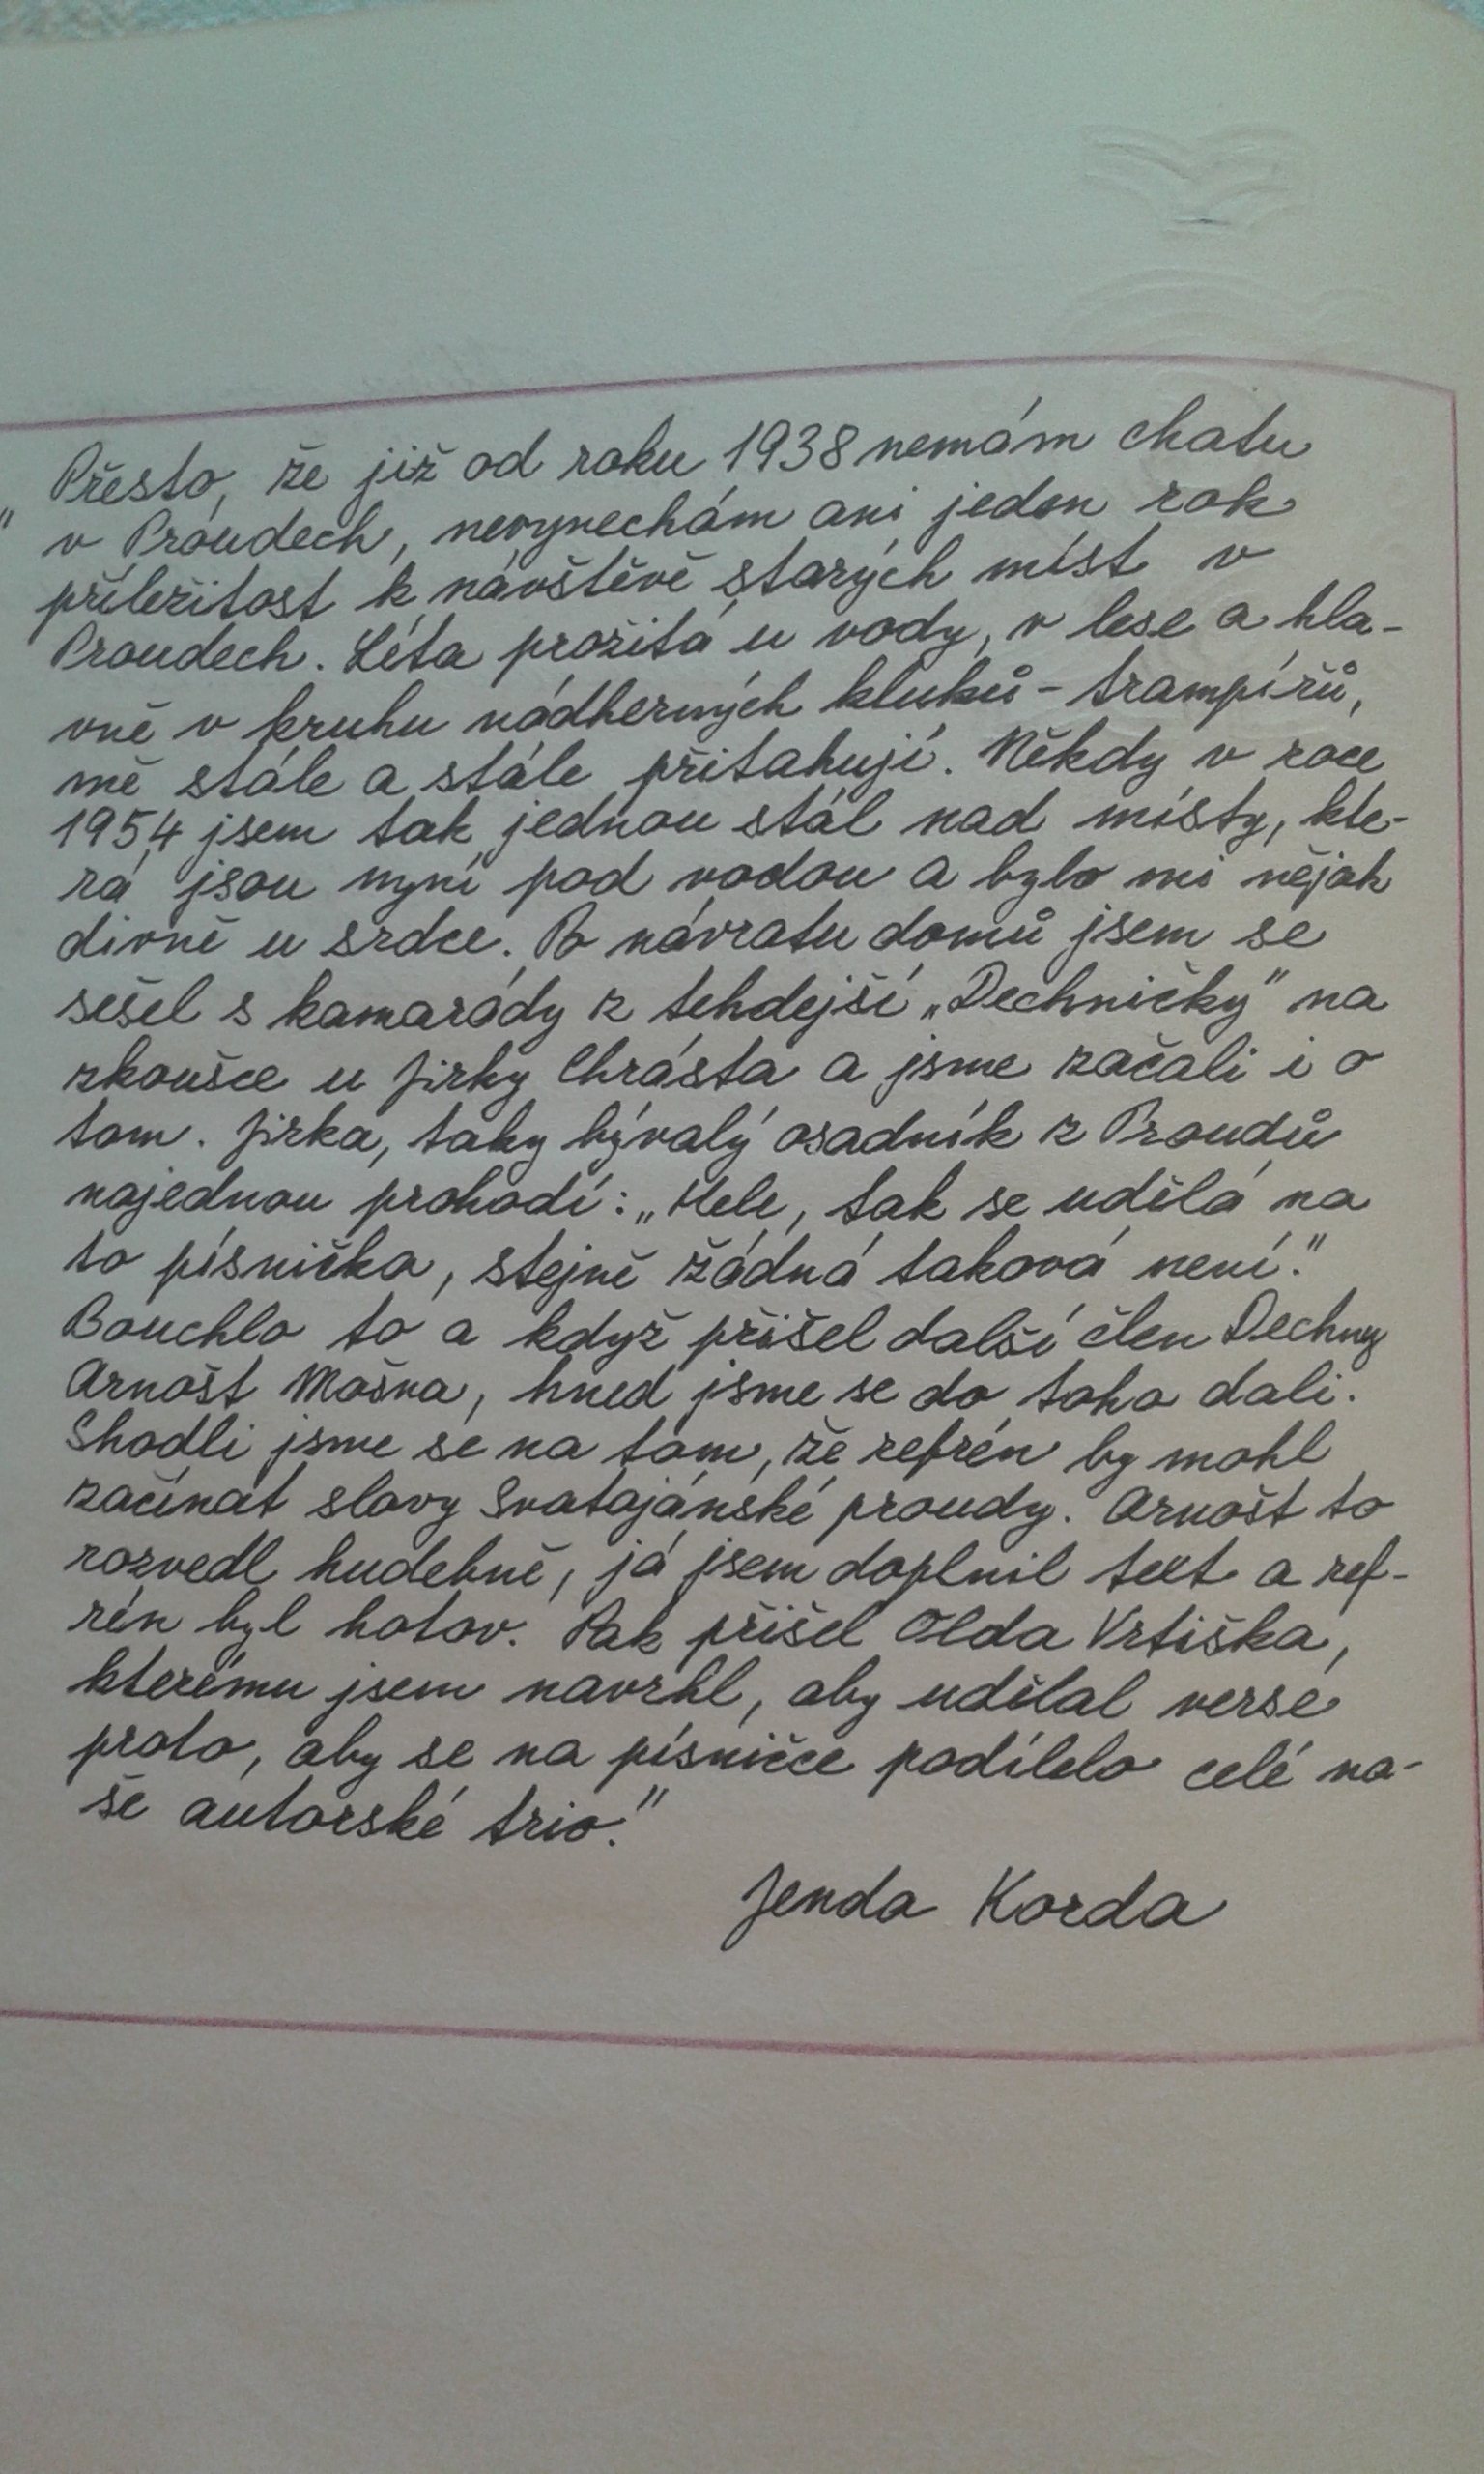 „Přesto, že již od roku 1938 nemám chatu
v Proudech, nevynechám ani jeden rok
příležitost k návštěvě starých míst v
Proudech. Léta prožitá u vody, v lese a hla-
vně v kruhu nádherných kluků - trampířů,
mě stále a stále přitahují. Někdy v roce
1954 jsem tak jednou stál nad místy, kte-
rá jsou nyní pod vodou a bylo mi nějak
divně u srdce. Po návratu domů jsem se
sešel s kamarády z tehdejší „Dechničky" na
zkoušce u Jirky Chrásta a jsme začali i o
tom. Jirka, taky bývalý osadník z Proudů
najednou prohodí: „Hele, tak se udělá na
to písnička, stejně žádná taková není."
Bouchlo to a když přišel další člen Dechny
Arnošt Mošna, hned jsme se do toho dali.
Shodli jsme se na tom, že refrén by mohl
začínat slovy Svatojánské proudy. Arnošt to
rozvedl hudebně, já jsem doplnil text a ref-
rén byl hotov. Pak přišel Olda Vrtiška,
kterému jsem navrhl, aby udělal verse
proto, aby se na písničce podílelo celé na-
še autorské trio."
Jenda Korda